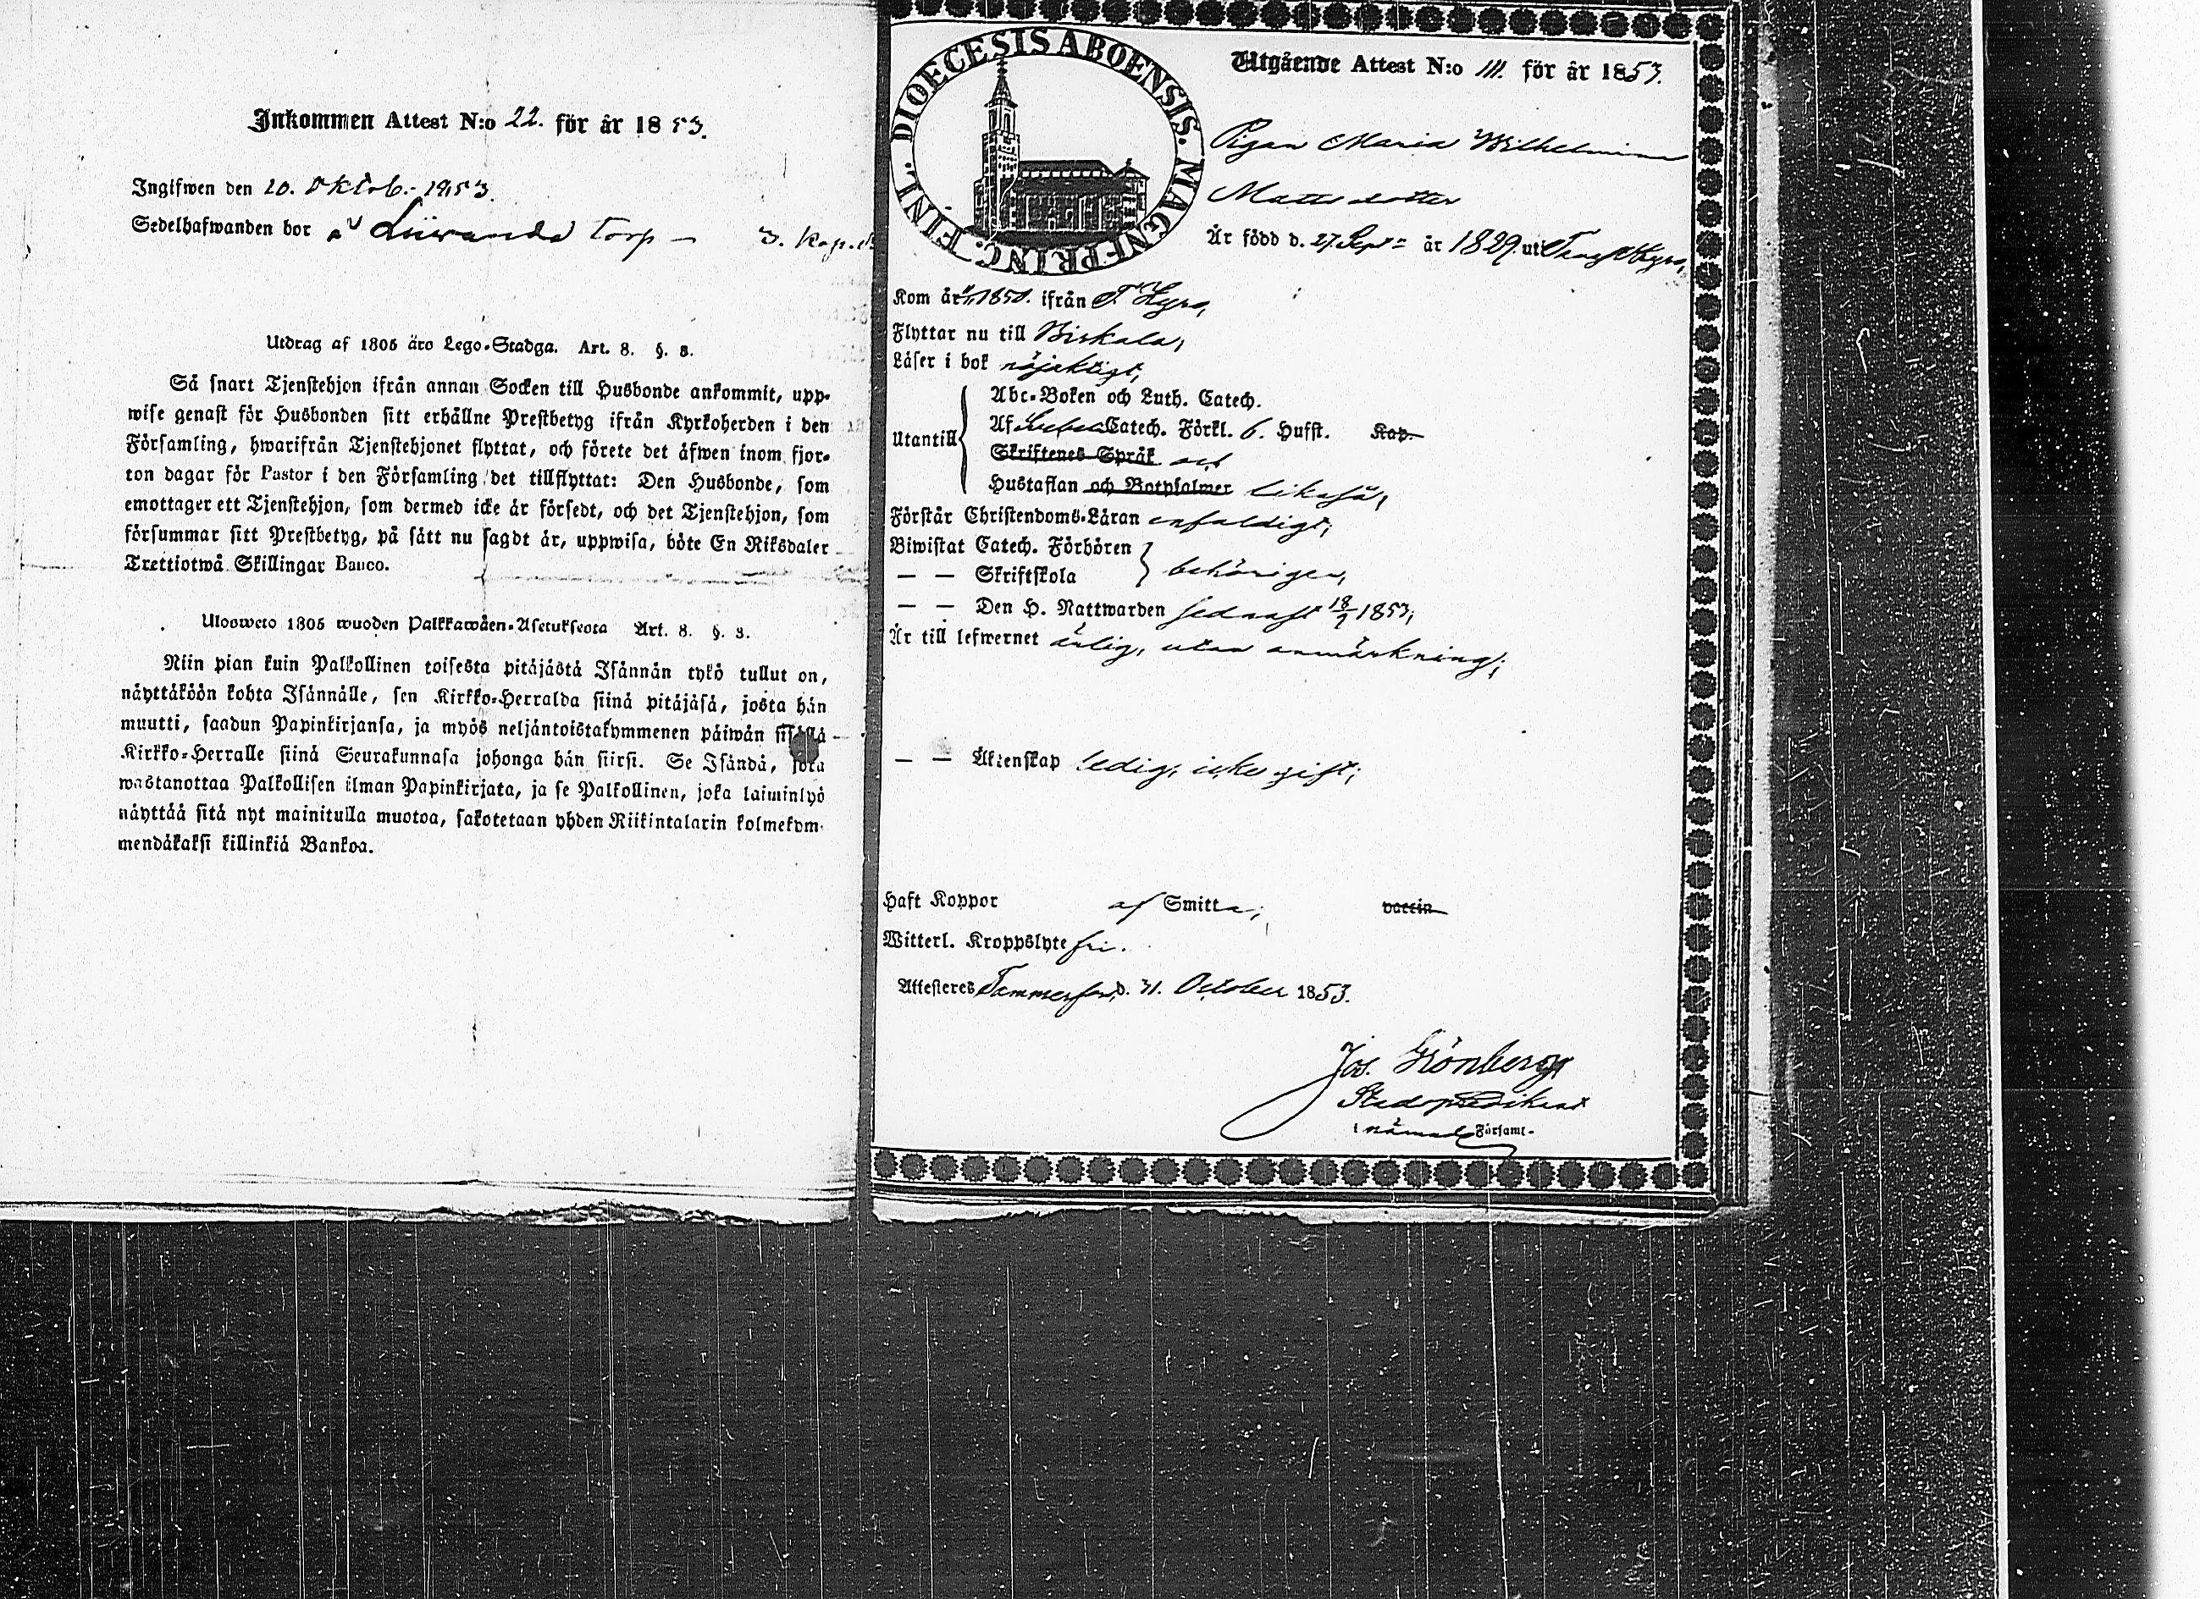 Inkommen Attest N:o 22. för år 1853.
Ingifwen den 20. Oktob. 1853.
Sedelhafwanden bor å torp
Utdrag af 1805 åro Lego-Stadga. Art. 8. §. 3.
Så snart Tjenstehjon ifrån annan Socken till Husbonde ankommit, upp-
wise genast för Husbonden sitt erhållne Prestbetyg ifrån Kyrkoherden i den
Församling, hwarifrån Tjenstehjonet flyttat, och förete det äfwen inom fjor-
ton dagar för Pastor i den Församling det tillflyttat: Den Husbonde, som
emottager ett Tjenstehjon, som dermed icke är försedt, och det Tjenstehjon, som
försummar sitt Prestbetyg, på sått nu sagdt är, uppwisa, böte En Riksdaler
Trettiotwå Skillingar Banco.
Ulosweto 1805 wuoden Palkkawåen-Asetuksesta Art. 8. §. 3.
Niin pian kuin Palkollinen toisesta pitäjästä Isännän tykö tullut on,
näyttäköön kohta Isännälle, sen Kirkko-Herralda siinä pitäjäsä, josta hän
muutti, saadun Papinkirjansa, ja myös neljäntoistakymmenen päiwän sisällä
Kirkko-Herralle siinä Seurakunnasa johonga hän siirsi. Se Isändä, joka
wastanottaa Palkollisen ilman Papinkirjata, ja se Palkollinen, joka laiminlyö
näyttää sitä nyt mainitulla muotoa, sakotetaan yhden Riikintalarin kolmekym-
mendäkaksi killinkiä Bankoa.
DIOECESIS ABOENSIS. MAGN. PRINC. FINL.
Utgående Attest N:o 111. för år 1853.
Pigan Maria Wilhelmina
Mattsdotter
Är född d. 27 Sept: år 1829. uti Kyro,
Kom år 1850. ifrån T. Kyro,
Flyttar nu till Birkala,
Läser i bok nöjaktigt,
Abc-Boken och Luth. Catech.
Utantill Af Catech. Förkl. 6. Hufst. Kap.
Skriftenes Språk och
Hustaflan och Botpsalmer likaså,
Förstår Christendoms-Läran enfaldigt;
Biwistat Catech. Förhören
— — Skriftskola behörigen,
— — Den H. Nattwarden sednast 18/9 1853;
Är till lefwernet ärlig, utan anmärkning;
— — Äktenskap ledig, icke gift;
Haft Koppor af Smitta; vaccin
Witterl. Kroppslyte fri.
Attesteres Tammerfors d. 31. October 1853.
Jos. Grönberg
Stadspredikant
i nämnde Församl.